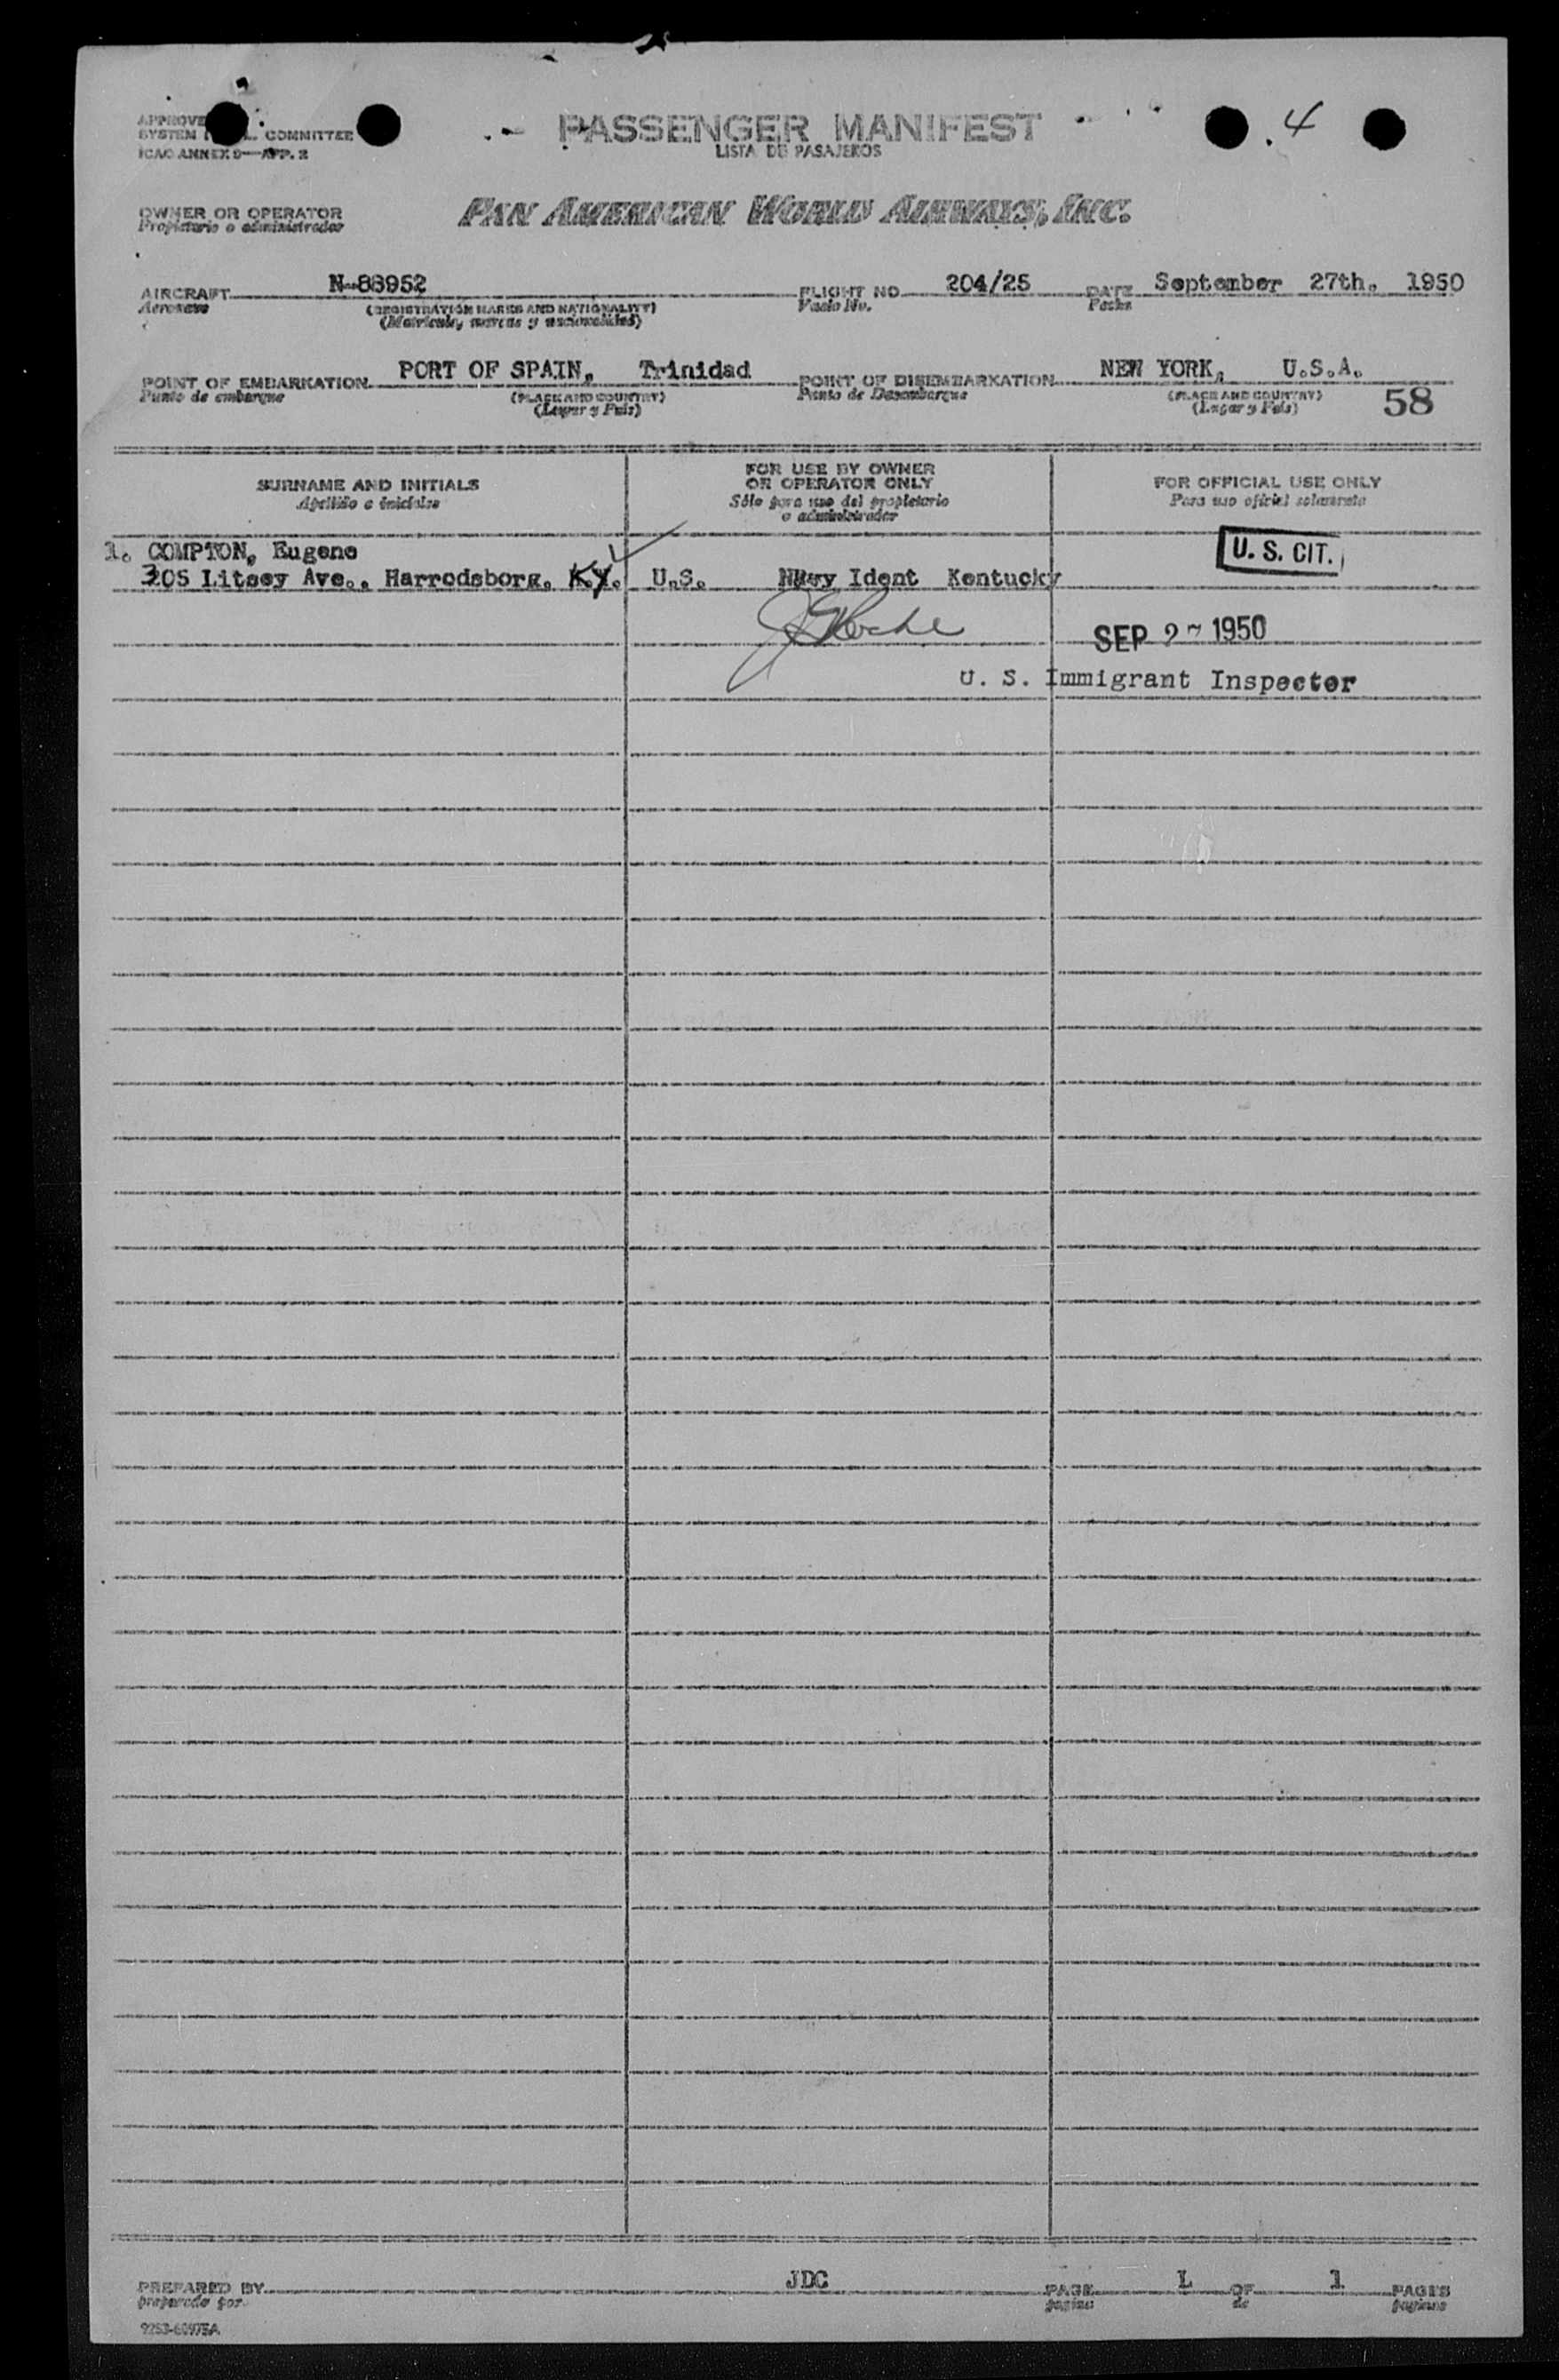 APPROVE
SYSTEM L. COMMITTEE
ICAO ANNEX 9—APP. 2
PASSENGER MANIFEST
LISTA DE PASAJEROS
. 4
OWNER OR OPERATOR
Propietario o administrador
PAN AMERICAN WORLD AIRWAYS, INC.
AIRCRAFT N-88952 FLIGHT NO. 204/25 DATE September 27th. 1950
Aeronave (REGISTRATION MARKS AND NATIONALITY) Vuelo No. Fecha
(Matricula, marcas y nacionalidad)
POINT OF EMBARKATION PORT OF SPAIN, Trinidad POINT OF DISEMBARKATION NEW YORK, U.S.A.
Punto de embarque (PLACE AND COUNTRY) Punto de Desembarque (PLACE AND COUNTRY)
(Lugar y Pais) (Lugar y Pais) 58
SURNAME AND INITIALS
Apellido e iniciales
FOR USE BY OWNER
OR OPERATOR ONLY
Sólo para uso del propietario
o administrador
FOR OFFICIAL USE ONLY
Para uso oficial solamente
1. COMPTON, Eugene
305 Litsey Ave., Harrodsborg, Ky. U.S. Navy Ident Kentucky
U. S. CIT.
SEP 27 1950
U. S. Immigrant Inspector
PREPARED BY JDC PAGE 1 OF 1 PAGES
preparado por pagina de paginas
9253-60975A